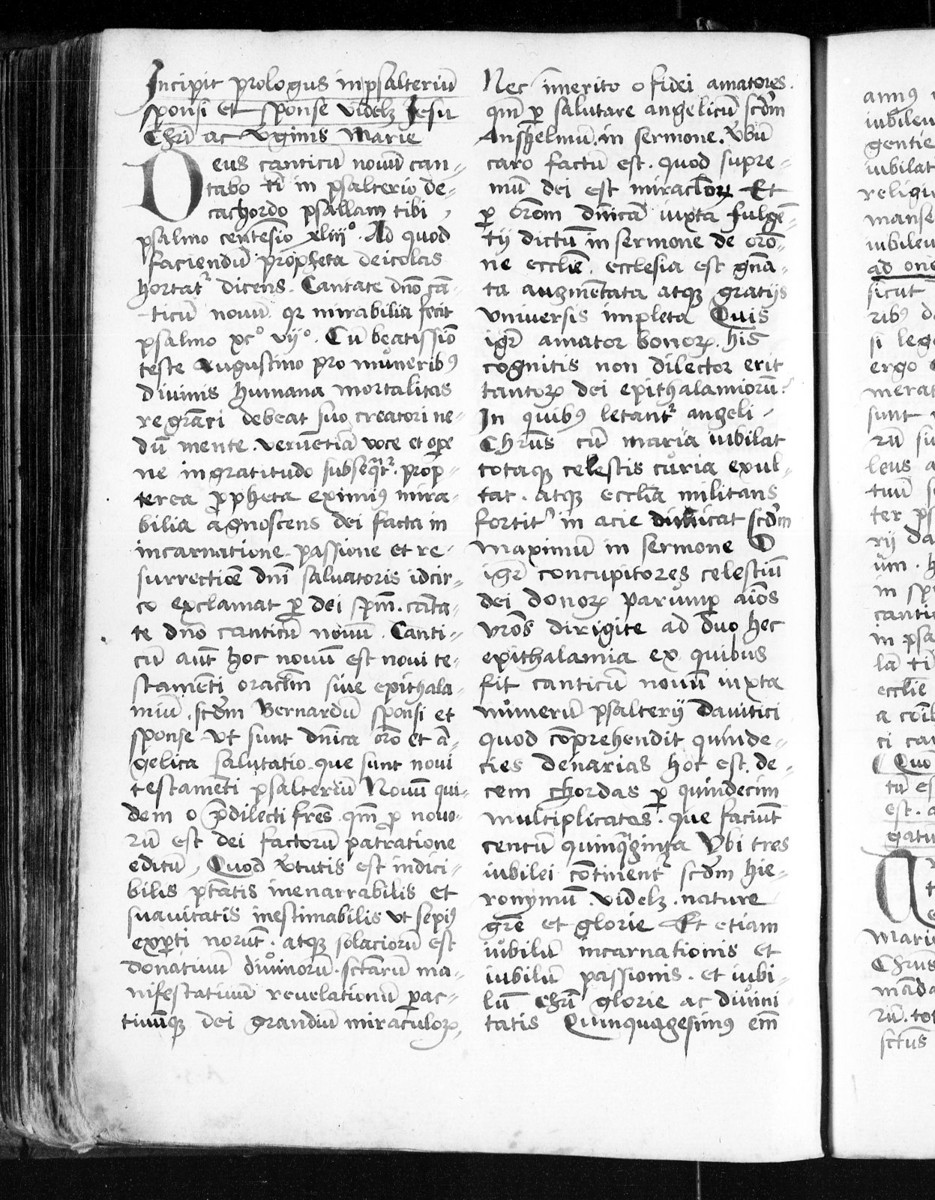 Incipit prologus in psalteriū
sponsi et sponse videlʒ Jesu
Chrī ac v̄ginis Marie
Deus canticū novū can-
tabo ti in psalterio de-
cachordo psallam tibi,
psalmo centesīo xliijº. Ad quod
faciendū propheta deicolas
hortatr dicens. Cantate dnō cā-
ticū novū. qr mirabilia fecit
psalmo xcº vijº. Cū beatissiō
teste Augustino pro muneribꝰ
divinis humana mortalitas
regrāri debeat suo creatori ne-
dū mente. verūetiā voce et ope
ne ingratitudo subseqtr. prop-
terea ꝓpheta eximiꝰ mira-
bilia agnoscens dei facta in
incarnatione. passione et re-
surrectiōe dnī salvatoris idcir-
co exclamat ꝑ dei spm̄. canta-
te dnō canticū novū. Canti-
cū aut̄ hoc novū est novi te-
stamēti oraclm̄ sive epithala-
miū. scdm̄ Bernardū sponsi et
sponse. Ut sunt dn̄ica orō et ā-
gelica salutatio. que sunt novi
testamēti psalteriū Novū qui-
dem o p̄dilecti frēs. qm̄ ꝓ novo-
rū est dei factorū patratione
editū, Quod v̄tutis est indici-
bilis ptātis inenarrabilis et
suavitatis inestimabilis ut sepiꝰ
exꝑti norūt. atqʒ solaciorū est
donativū divinorū. sctārū ma-
nifestativū revelationū pac-
tivūqʒ dei grandiū miraculoꝝ,
Nec īmerito o fidei amatores.
qm̄ ꝑ salutare angelicū scdm̄
Anshelmū. in sermone. v̄bū
caro factū est. quod supre-
mū dei est miracloꝝ Et
ꝑ orōem dn̄icā iuxta fulgē-
tij dictū in sermone de orō-
ne ecclīe. ecclesia est gn̄a-
ta augmētata atqʒ gratijs
universis impleta Quis
igr̄ amator bonoꝝ. his
cognitis non dilector erit
tantoꝝ dei epithalamiorū?
In quibꝰ letantr angeli.
Chrūs cū maria iubilat
totaqʒ celestis curia exul-
tat. atqʒ ecclīa militans
fortitr in acie dimicat scdm̄
Maximū in sermone O
igr̄ concupitores celestiū
dei donoꝝ parūmp aīos
vrōs dirigite ad duo hec
epithalamia ex quibus
fit canticū novū iuxta
numerū psalterij davitici
quod cōprehendit quinde-
cies denarias hoc est. de-
cem chordas ꝑ quindecim
multiplicatas. que faciūt
centū quinqᷓginta Ubi tres
iubilei cōtinent̄ scdm̄ hie-
ronymū. videlʒ. nature
grē et glorie Et etiam
iubilū incarnationis et
iubilū passionis. et iubi-
lū chrī glorie ac divini
tatis Quinquagesimꝰ em̄
annꝰ
iubileu
gentie
iubilat
religi
manse
iubileu
ad one
sicut
ribꝰ d
si leg
ergo
merat
sunt
rū su
leus a
tuū s
ter ps
rij da
in sp
cantic
in psa
la ti
ecclīe
ci can
(Quo
tu es
est. a
gatu
Mari
Chrūs
māda
rū. tot
sctūs